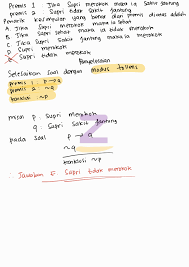 Premis 1 Jika Supri merokok maka ia sakit jantung
premis 2 Supri tidak sakit jantung
Penarik kesimpulan yang benar dari premis diatas adalah
A. Jika Supri merokok
B. Jika Supri sehat maka ia tidak merokok
C. Jika Supri sakit jantung maka ia merokok
D. Supri merokok
E. Supri tidak merokok
Penyelesaian
Selesaikan soal dengan modus tollens
premis 1 p → q
premis 2 ~q
konklusi ~p
misal p : Supri merokok
q : Supri sakit jantung
pada soal p → q
~q
konklusi ~p
∴ Jawaban E Supri tidak merokok